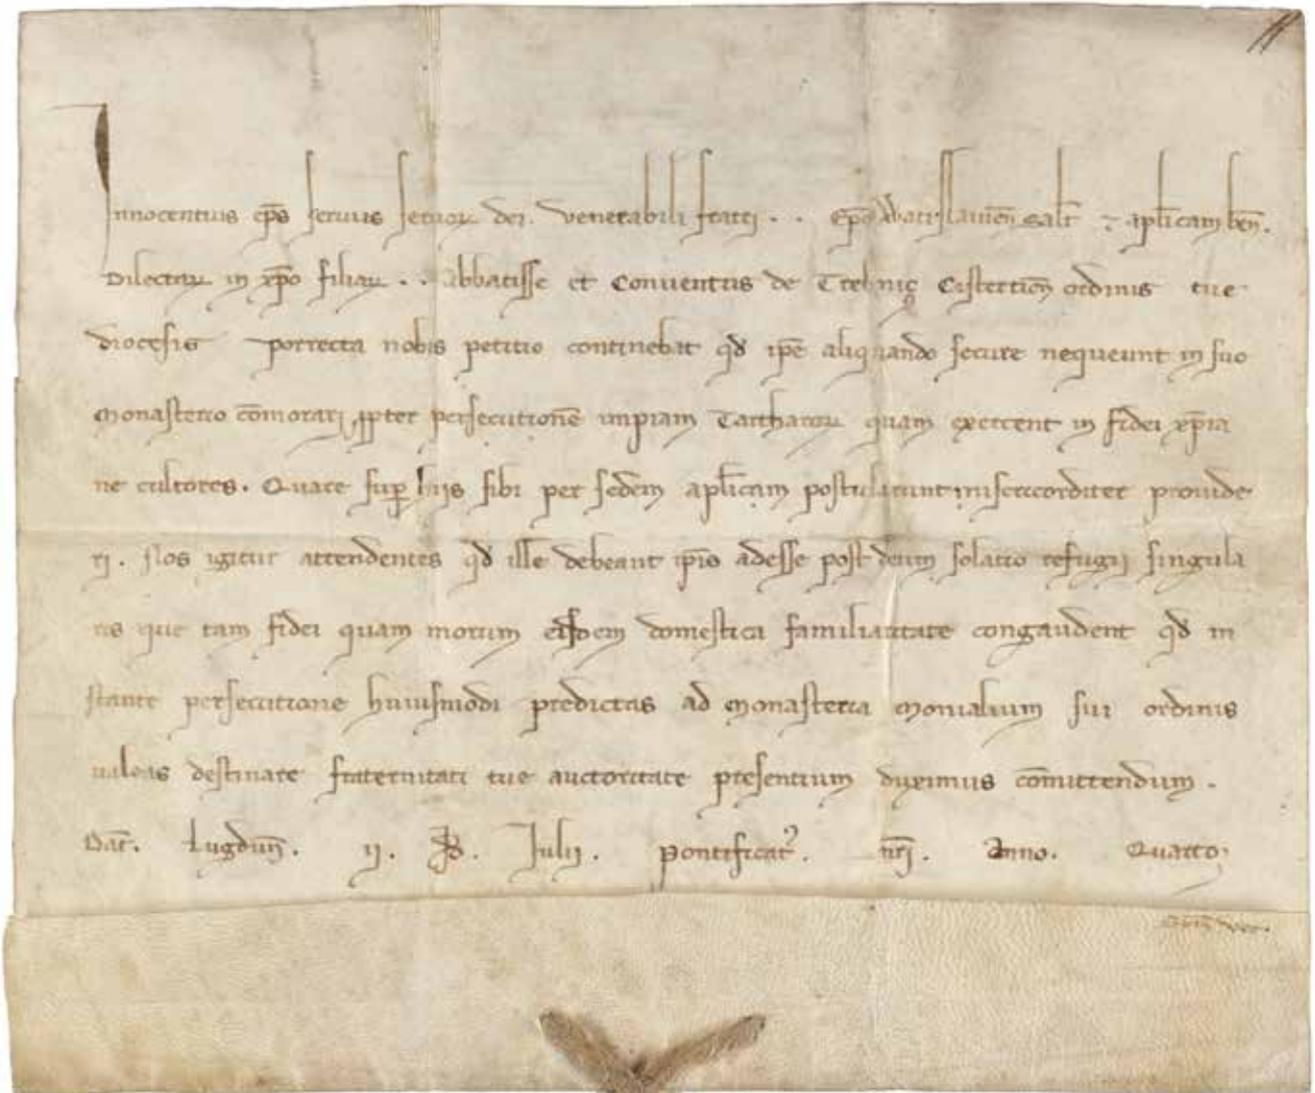 Innocentius ep̄s seruus seruoꝝ dei. venerabili fratri . . Ep̄o Wratislauien̄ salt̄ ⁊ apl̄icam ben̄.
Dilectaꝝ in xp̄o filiaꝝ . . abbatisse et Conuentus de Trebnic Cistercien̄ ordinis tue
diocesis porrecta nobis petitio continebat qđ ip̄e aliquando secure nequeunt in suo
Monasterio cōmorari ꝓpter persecutionē impiam Tartharoꝝ quam exercent in fidei xp̄ia
ne cultores. Quare suꝑ hijs sibi per sedem apl̄icam postularunt misericorditer prouide
ri. Nos igitur attendentes qđ ille debeant ip̄is adesse post deum solatio refugij singula
ris que tam fidei quam morum eisdem domestica familiaritate congaudent qđ in
stante persecutione huiusmodi predictas ad Monasteria Monialium sui ordinis
ualeas destinare fraternitati tue auctoritate presentium duximus cōmittendum.
Dat̄. Lugdun̄. ij. Id. Julij. Pontificatꝰ. nr̄i. Anno. Quarto